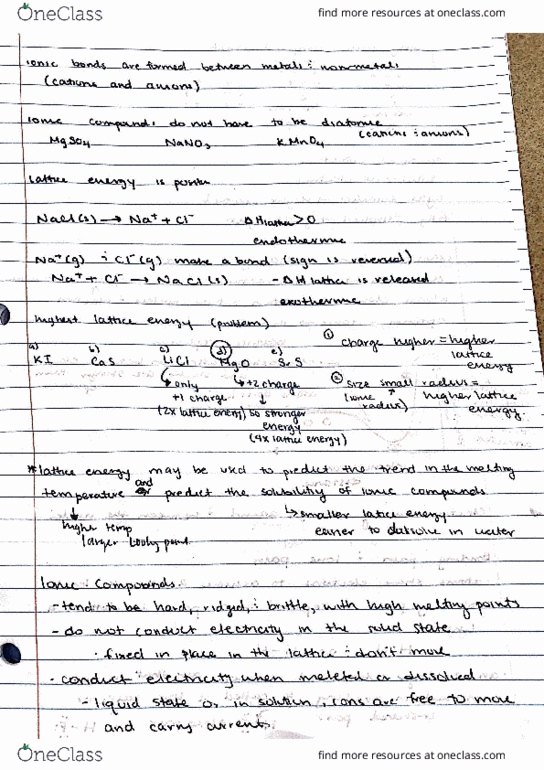 OneClass
find more resources at oneclass.com
Ionic bonds are formed between metals : nonmetals
(cations and anions)
Ionic compounds do not have to be diatomic
(cations : anions)
MgSO4 NaNO3 KMnO4
Lattice energy is
NaCl(s) → Na+ + Cl- ΔHlattice > 0
endothermic
Na+(g) : Cl-(g) make a bond (sign is reversed)
Na+ + Cl- → NaCl(s) - ΔH lattice is released
exothermic
highest lattice energy (problem)
① charge higher = higher
lattice
energy
a) KI b) CaS c) LiCl d) MgO e) SrS
② size small radius =
(ionic radius) higher lattice
energy.
only
+1 charge
(2x lattice energy)
+2 charge
so stronger
energy
(4x lattice energy)
*lattice energy may be used to predict the trend in the melting
temperature and predict the solubility of ionic compounds
higher temp
larger
smaller lattice energy
easier to dissolve in water
Ionic Compounds.
- tend to be hard, ridged, : brittle, with high melting points
- do not conduct electricity in the solid state
· fixed in place in the lattice : don't move
- conduct electricity when melted or dissolved
- liquid state or in solution, ions are free to move
and carry current.
OneClass
find more resources at oneclass.com